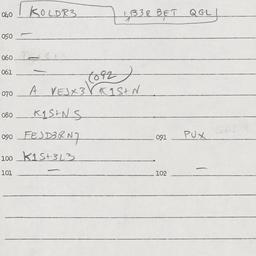 040 KOLDR3 1B3R BET QGL
050 —
060 —
061 —
(092
070 A VEJX3 K1S+N
080 K1S+N5
090 FEJD3RN7 091 PUX
100 K1S+3L3
101 — 102 —